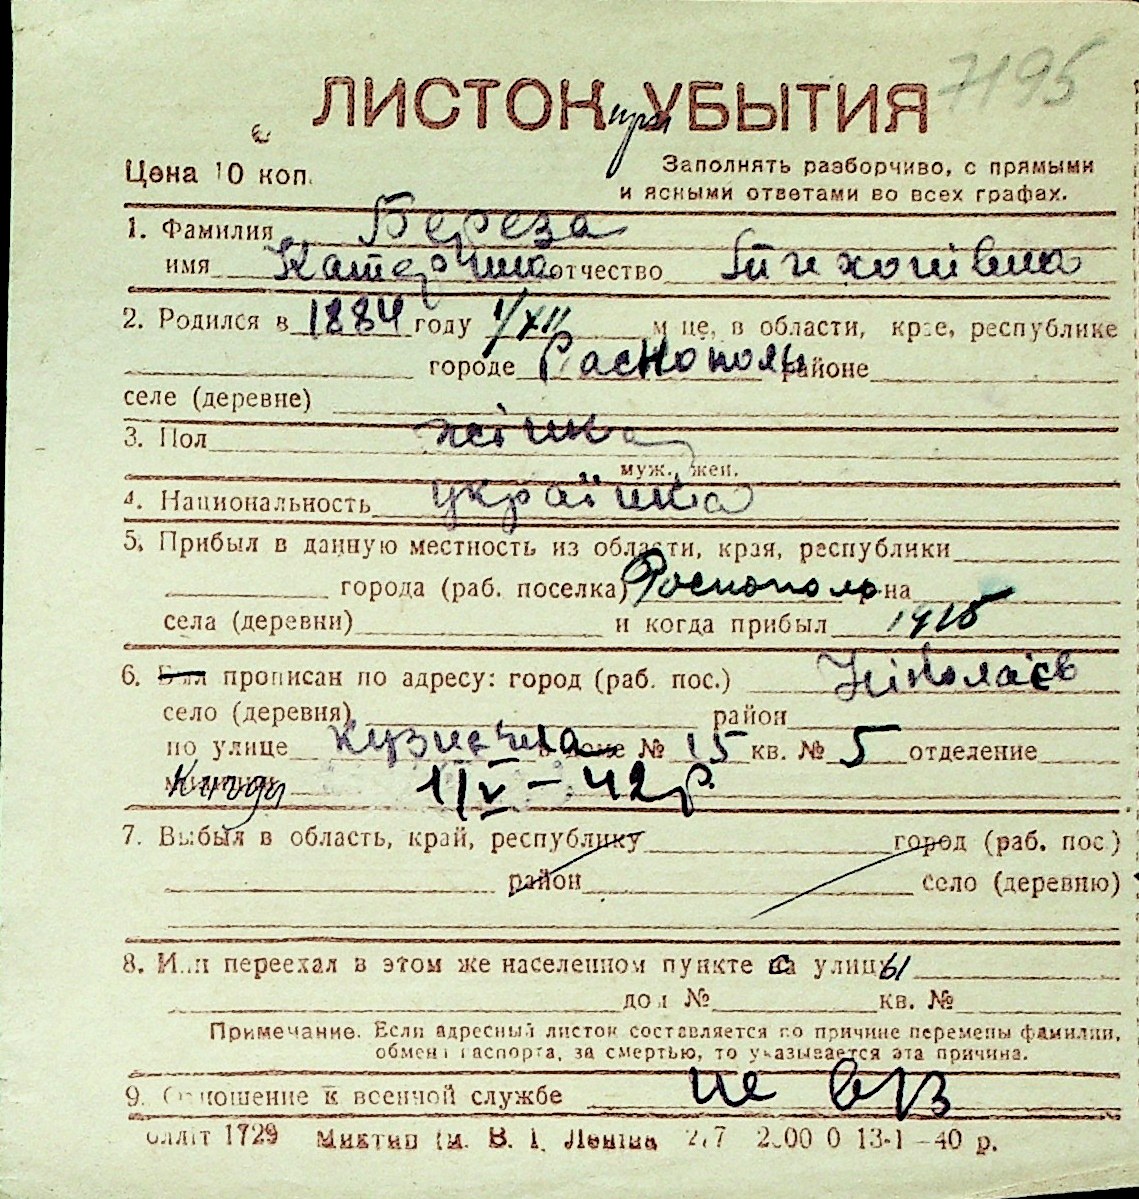 7195
ЛИСТОК при УБЫТИЯ
Цена 10 коп.
Заполнять разборчиво, с прямыми
и ясными ответами во всех графах.
1. Фамилия Береза
имя Катерина отчество Тихонівна
2. Родился в 1884 году 1/XII м-це, в области, крае, республике
городе Распополь районе
селе (деревне)
3. Пол жінка
муж., жен.
4. Национальность українка
5. Прибыл в данную местность из области, края, республики
города (раб. поселка) Роспополь р-на
села (деревни) и когда прибыл
6. Был прописан по адресу: город (раб. пос.) Ніколаєв
село (деревня) район
по улице № 15 кв. № 5 отделение
1/V - 42 р.
7. Выбыл в область, край, республику город (раб. пос.)
район село (деревню)
8. Или переехал в этом же населенном пункте с улицы
дом № кв. №
Примечание. Если адресный листок составляется по причине перемены фамилии,
обмена паспорта, за смертью, то указывается эта причина.
9. Отношение к военной службе не в/з
Оллiт 1729 Миктип im. В. І. Леніна 2000 0 13-1-40 р.